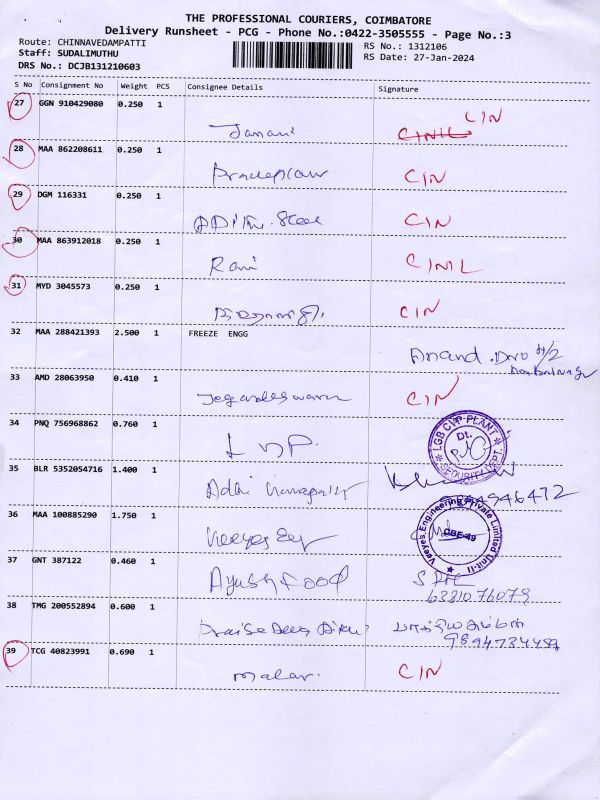 THE PROFESSIONAL COURIERS, COIMBATORE
Delivery Runsheet - PCG - Phone No.:0422-3505555 - Page No.:3
Route: CHINNAVEDAMPATTI RS No.: 1312106
Staff: SUDALIMUTHU RS Date: 27-Jan-2024
DRS No.: DCJB131210603
S No Consignment No Weight PCS Consignee Details Signature
27 GGN 910429080 0.250 1
Janani CIN
28 MAA 862208611 0.250 1
CIN
29 DGM 116331 0.250 1
CIN
30 MAA 863912018 0.250 1
Rani CINIL
31 MYD 3045573 0.250 1
CIN
32 MAA 288421393 2.500 1 FREEZE ENGG
Anand
33 AMD 28063950 0.410 1
Jegadeeswaran CIN
34 PNQ 756968862 0.760 1
LGB CVP-PLANT
Dt.
SECURITY DEPT.
35 BLR 5352054716 1.400 1
Adhi
36 MAA 100885290 1.750 1
Veeyes Engineering Private Limited Unit-II
CBE-49
37 GNT 387122 0.460 1
Ayush Food
6381076079
38 TMG 200552894 0.600 1
39 TCG 40823991 0.690 1
malar. CIN